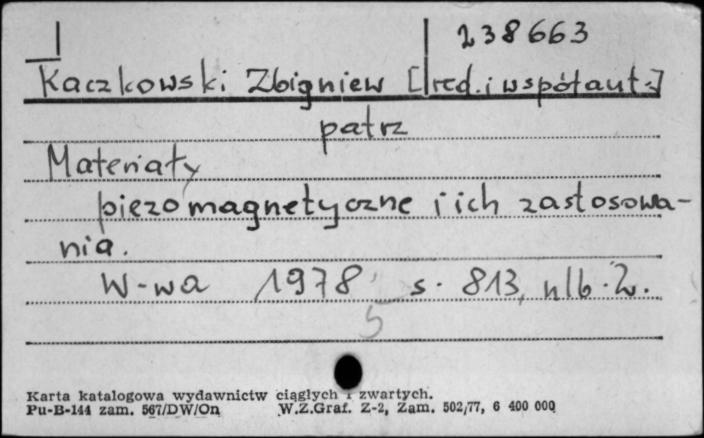 238663
Kaczkowski Zbigniew [red. i współaut.]
patrz
Materiały
piezomagnetyczne i ich zastosowa-
nia.
W-wa 1978, s. 813, nlb. 2.
5
Karta katalogowa wydawnictw ciągłych i zwartych.
Pu-B-144 zam. 567/DW/On W.Z.Graf. Z-2, Zam. 502/77, 6 400 000